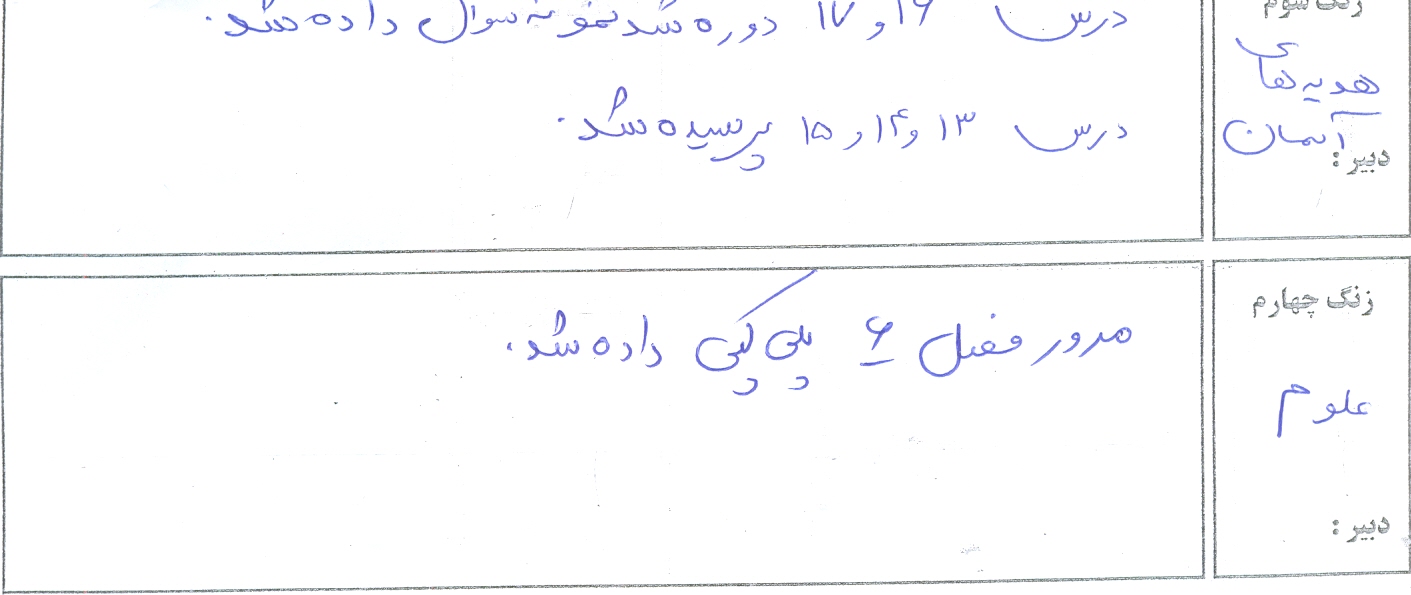 زنگ سوم
هدیه‌های
آسمان
دبیر :
درس ۱۶ و ۱۷ دوره شد نمونه سوال داده شد.
درس ۱۳ و ۱۴ و ۱۵ پرسیده شد.
زنگ چهارم
علوم
دبیر :
مرور فصل ۶ پلی کپی داده شد.